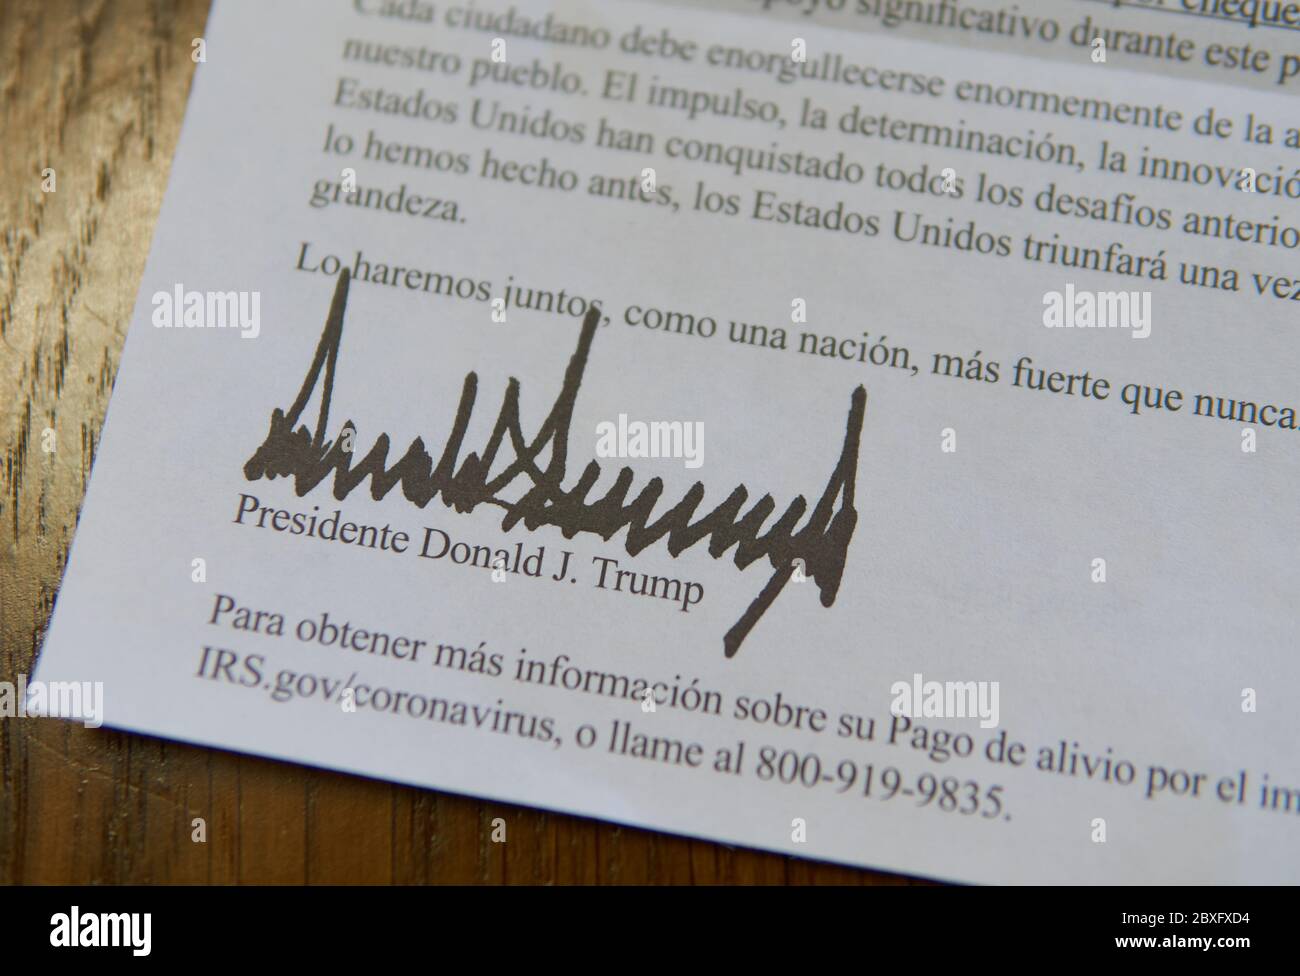 por cheque
apoyo significativo durante este p
Cada ciudadano debe enorgullecerse enormemente de la a
nuestro pueblo. El impulso, la determinación, la innovació
Estados Unidos han conquistado todos los desafíos anterio
lo hemos hecho antes, los Estados Unidos triunfará una vez
grandeza.
Lo haremos juntos, como una nación, más fuerte que nunca.
Presidente Donald J. Trump
Para obtener más información sobre su Pago de alivio por el im
IRS.gov/coronavirus, o llame al 800-919-9835.
alamy
Image ID: 2BXFXD4
www.alamy.com